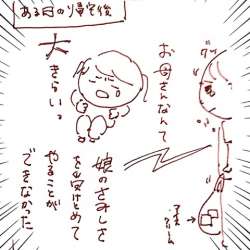 ある日の帰宅後
お母さんなんて
大
きらいっ。
娘のさみしさ
を受けとめて
やることが
できなかった